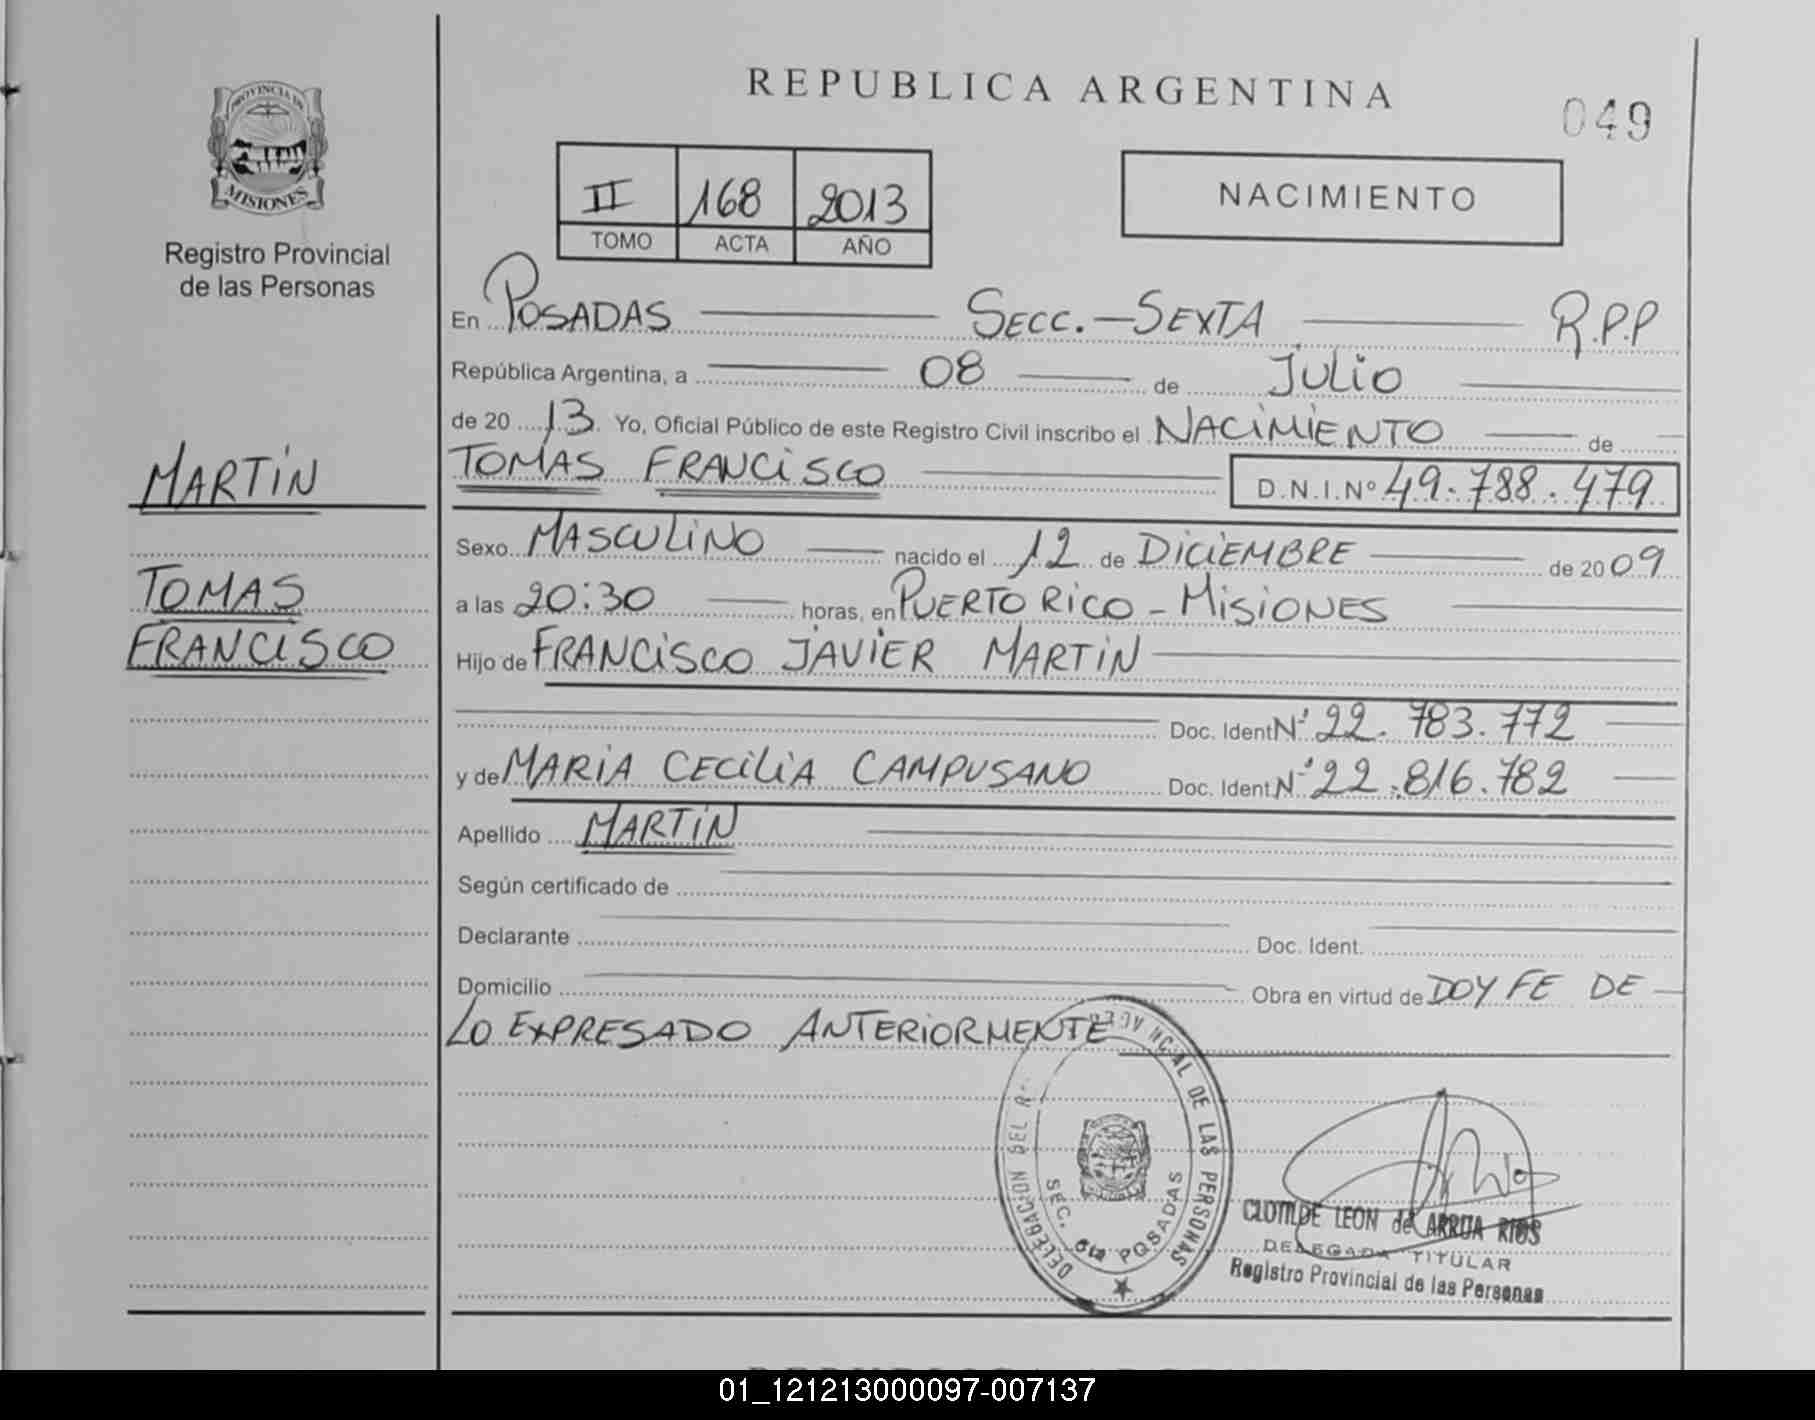 REPUBLICA ARGENTINA
049
PROVINCIA DE
MISIONES
Registro Provincial
de las Personas
II 168 2013
TOMO ACTA AÑO
NACIMIENTO
En POSADAS SECC.-SEXTA R.P.P
República Argentina, a 08 de JULIO
de 20 13. Yo, Oficial Público de este Registro Civil inscribo el NACIMIENTO de
MARTIN
TOMAS FRANCISCO D.N.I.Nº 49.788.479
Sexo MASCULINO nacido el 12 de DICIEMBRE de 20 09
TOMAS
a las 20:30 horas, en PUERTO RICO - MISIONES
FRANCISCO
Hijo de FRANCISCO JAVIER MARTIN
Doc. Ident Nº 22.783.772
y de MARIA CECILIA CAMPUSANO Doc. Ident Nº 22.816.782
Apellido MARTIN
Según certificado de
Declarante Doc. Ident.
Domicilio Obra en virtud de DOY FE DE
LO EXPRESADO ANTERIORMENTE
DELEGACION DEL DE LAS PERSONAS
SEC. 6ta POSADAS
CLOTILDE LEON de ARRUA RIOS
DELEGADA TITULAR
Registro Provincial de las Personas
01_121213000097-007137